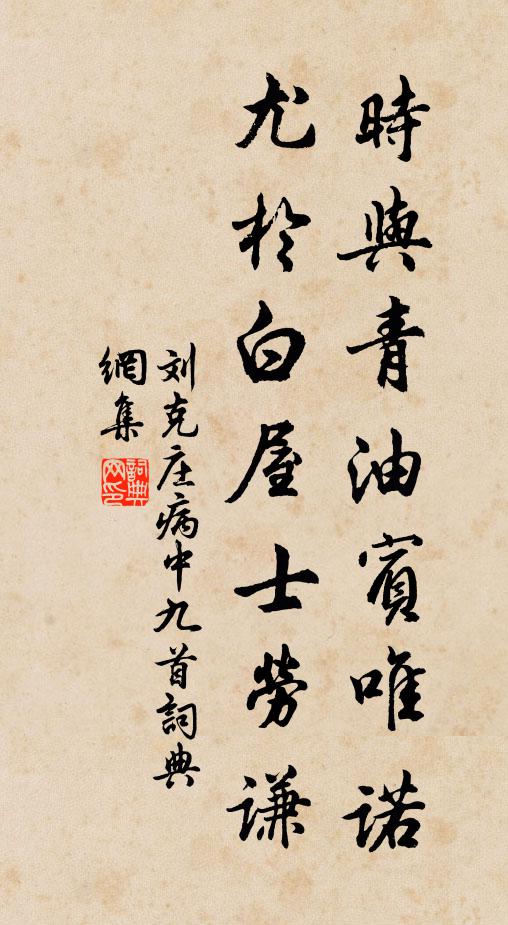 時與青油賓唯諾
尤於白屋士勞謙
刘克庄病中九首詞典
網集
詞典網印